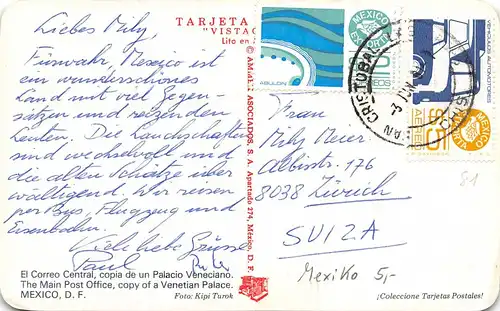 Liebes Mily,
Fürwahr, Mexico ist
ein wunderschönes
Land mit viel Gegen-
sätzen und reizenden
Leuten. Die Landschaften
sind wechselvoll und
die alten Schätze über-
wältigend. Wir reisen
per Bus, Flugzeug und
Eisenbahn.
Viele liebe Grüsse
Paul
El Correo Central, copia de un Palacio Veneciano.
The Main Post Office, copy of a Venetian Palace.
MEXICO, D. F.
Foto: Kipi Turok
TARJETA
"VISTA
Lito en
© AMMEX ASOCIADOS, S. A. Apartado 274, México, D. F.
ABULON
MEXICO
EXPORTA
MEXICO
AEREO
VEHICULOS AUTOMOTORES
SAN CRISTOBAL
Frau
Mily Meier
Albisstr. 176
8038 Zürich
SUIZA
81
Mexiko 5,-
¡Coleccione Tarjetas Postales!